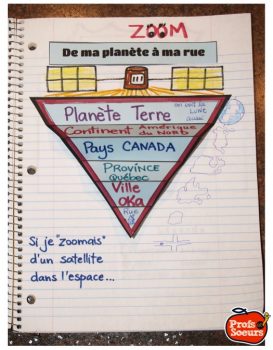 ZOOM
De ma planète à ma rue
Planète Terre
Continent Amérique
du Nord
Pays CANADA
PROVINCE
Québec
Ville
OKA
Rue
Si je "zoomais"
d'un satellite
dans l'espace...
Profs
Soeurs